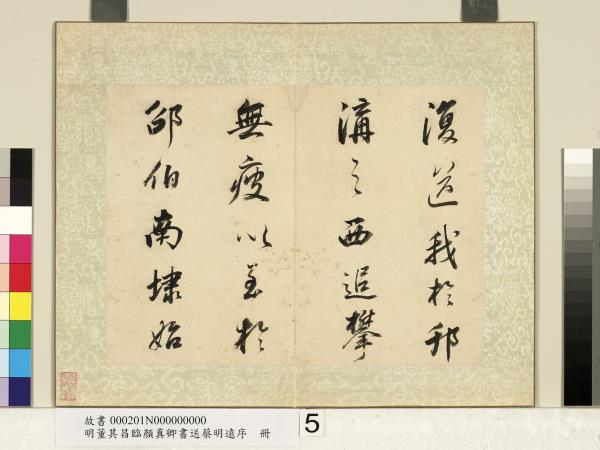 復我於邗
溝之西追攀
無疲以至於
邵伯南埭始
故書 000201N000000000
明董其昌臨顏真卿書送蔡明遠序 冊
5